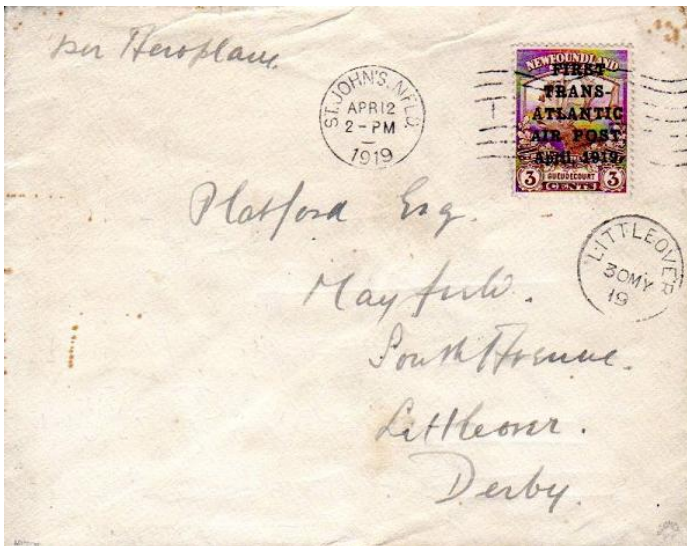 per Aeroplane
ST. JOHN'S, NFLD.
APR 12
2-PM
1919
NEWFOUNDLAND
FIRST
TRANS-
ATLANTIC
AIR POST,
April, 1919.
3 GUEUDECOURT 3
CENTS
Platford Esq.
LITTLEOVER
30 MY
19
Mayfield.
South Avenue.
Littleover.
Derby.